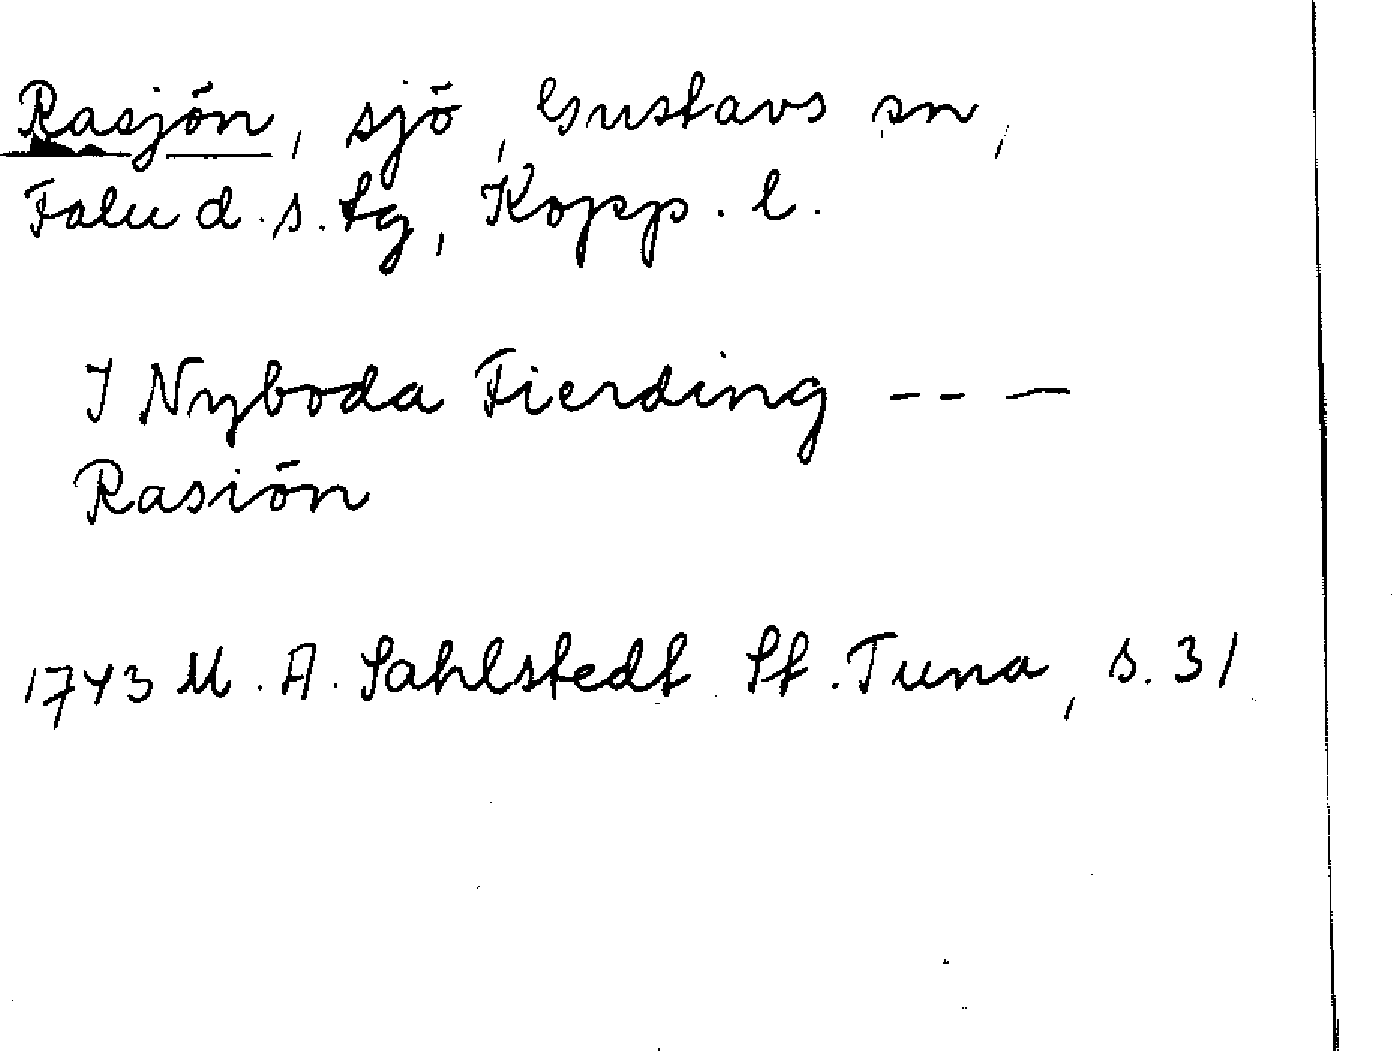 Rasjön, sjö, Gustavs sn,
Falu d.s. tg, Kopp. l.
I Nyboda Fierding - - —
Rasiön
1743 M. A. Sahlstedt St. Tuna, s. 31